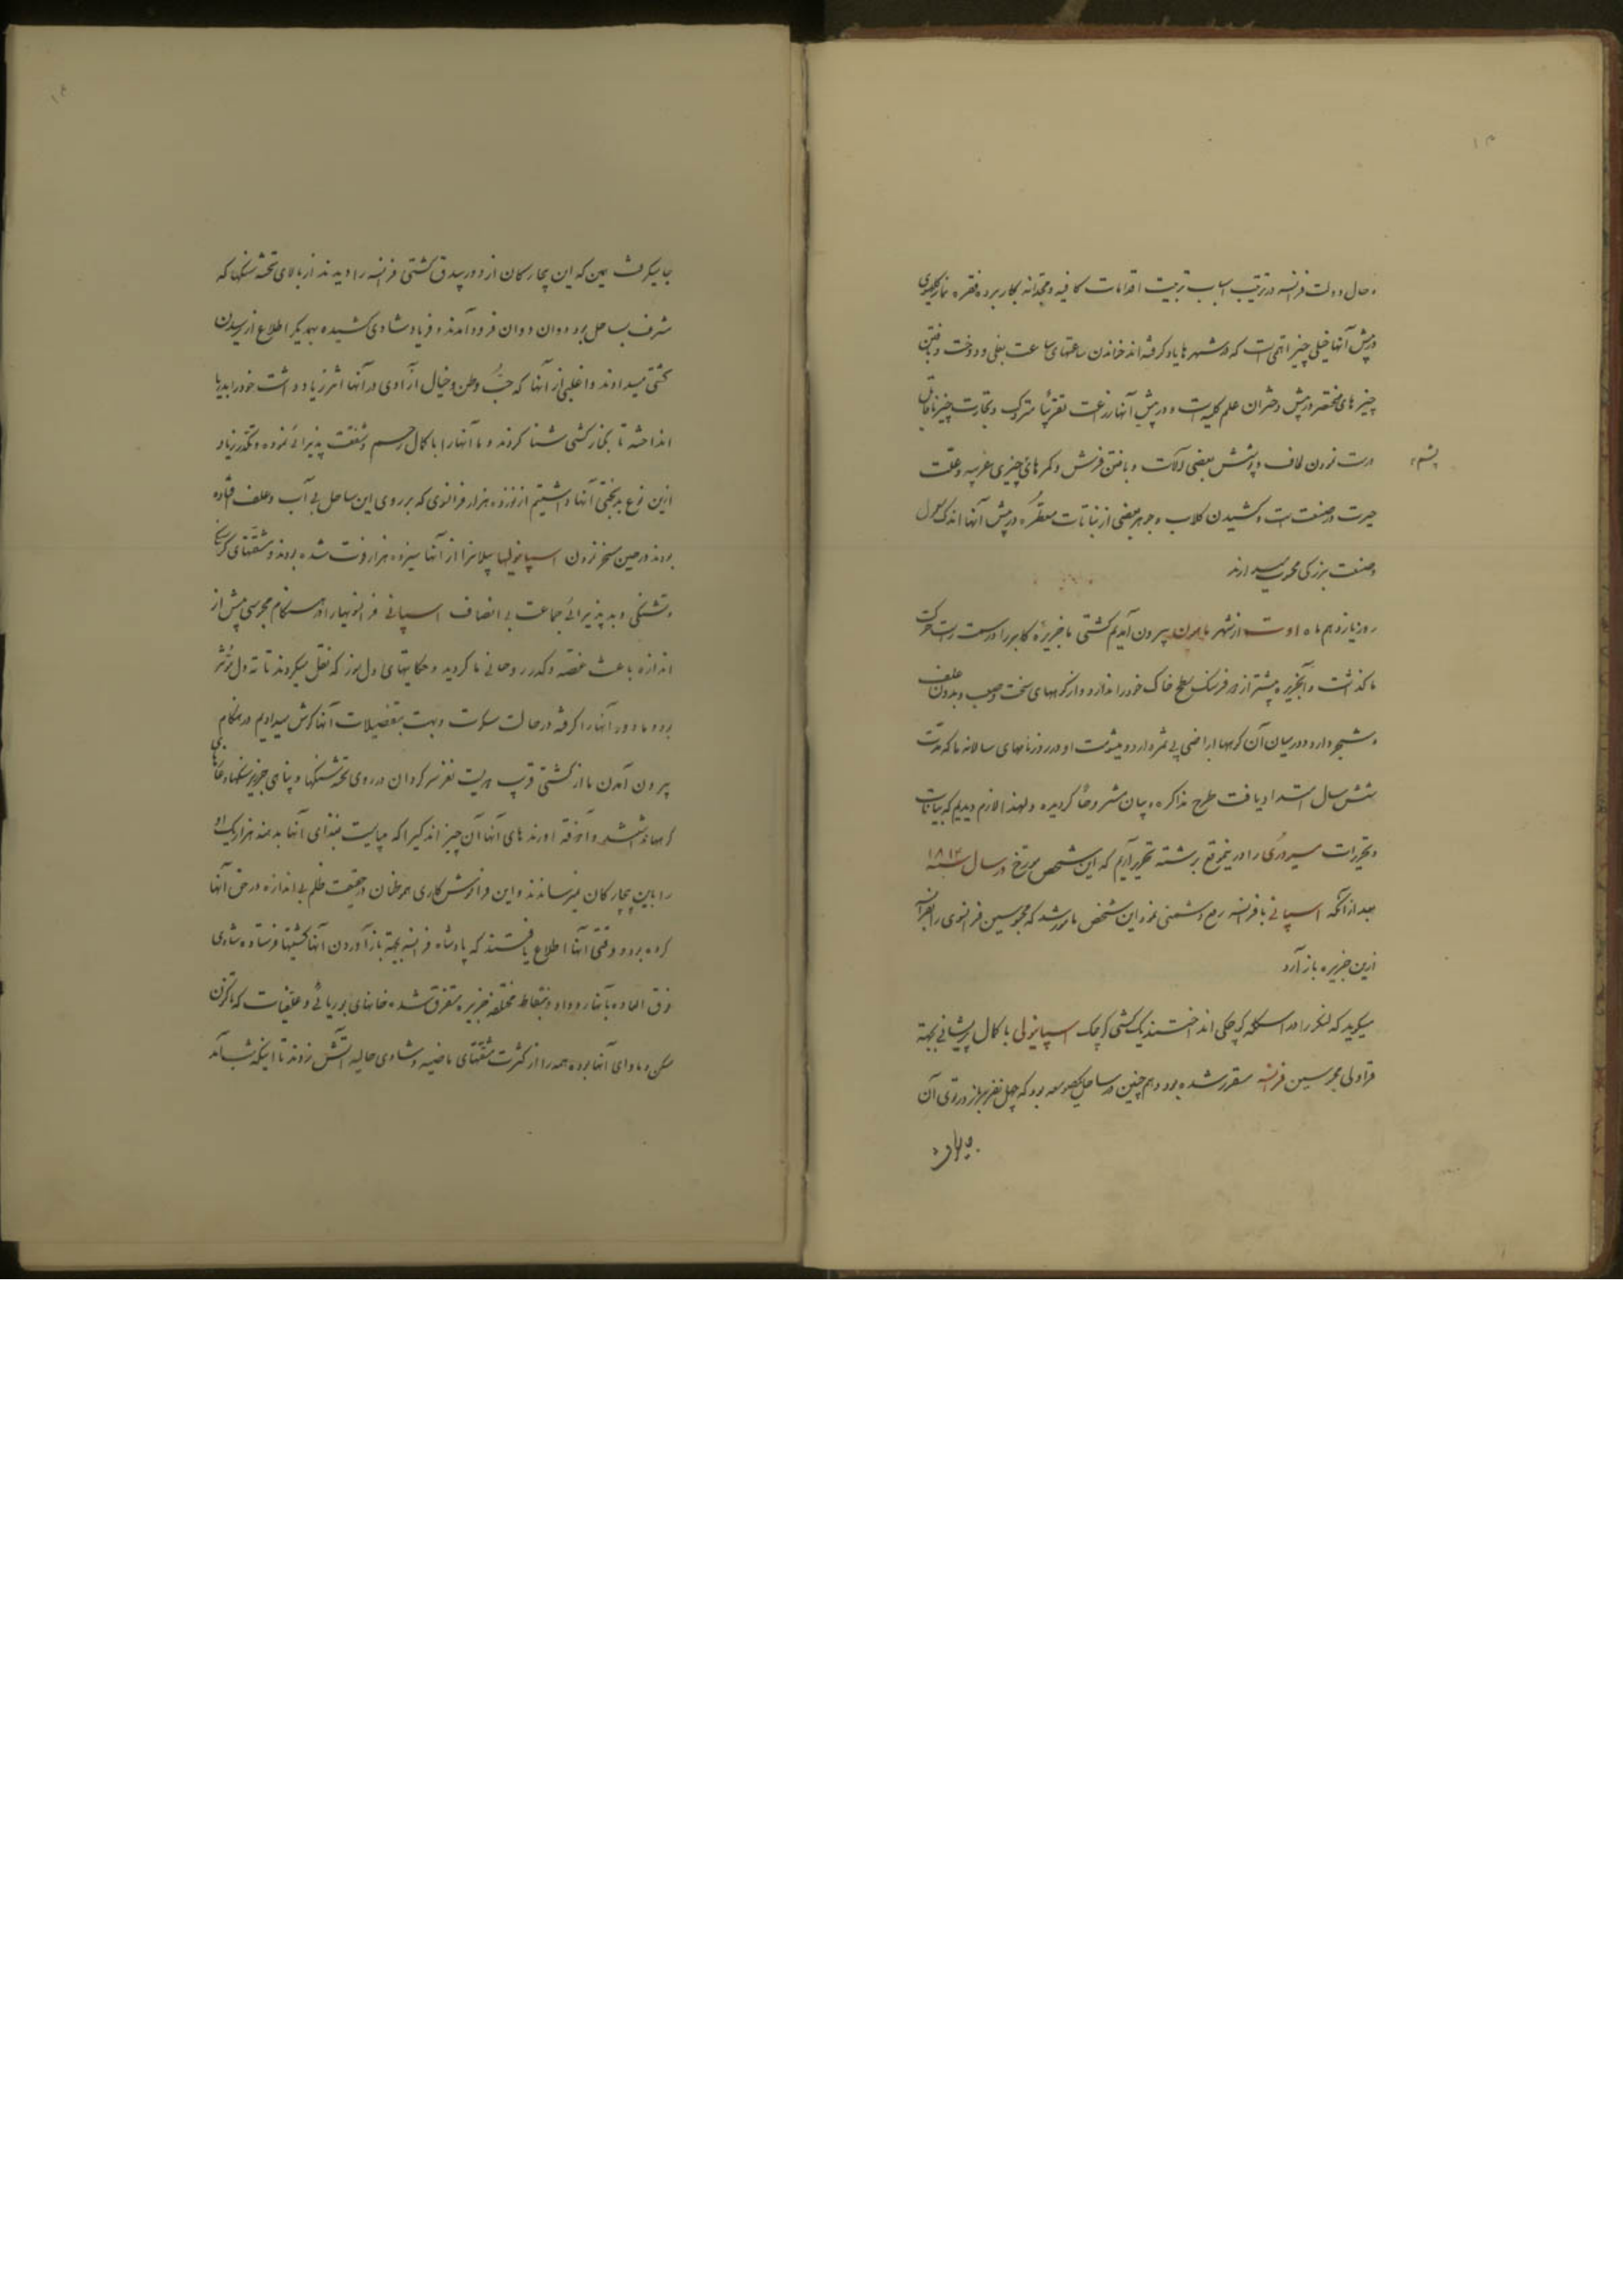 ۱۳
و حال دولت فرانسه در ترتیب اسباب تربیت اقدامات کافیه و مجدّانه بکار برده فقره نماز
در پیش آنها خیلی چیز اتمی است که در شهرها یاد گرفته‌اند خواندن ساعتهای بغلی و دوخت و
چیزهای مختصر در پیش دختران علم کلیه است و در پیش آنها زرعت تقریبًا متروک و تجارت چیز
پشم و
درست نمودن لحاف و پوشش بعضی آلات و بافتن فرش و کمرهای چیزی غریبه و علّت
حیرت و صنعت است و کشیدن کلاب و جوهر بعضی از نباتات معطّره در پیش آنها اندک
و صنعت بزرکی محسوب میدارند
روز یازدهم ماه اوت از شهر ماهون بیرون آمدیم کشتی ما جزیرهٔ کابررا در سمت راست حرکت
ما گذشت و آنجزیره بیشتر از دو فرسنک سطح خاک خود را ندارد و از کوههای سخت و صعب و بدون علف
و شجر دارد و در میان آن کوهها اراضی بی ثمره دارد و میشومت او در روزنامهای سالانه ما که مدّت
شش سال امتداد یافت طرح مذاکره و بیان مشروحًا گردیده و لهذا لازم دیدیم که بیانات
و تحریرات سیروری را در ینموقع برشته تحریر آریم که این شخص مورّخ در سال سنه ۱۸۱۴
بعد از آنکه اسپانی با فرانسه رفع دشمنی نمود این شخص مامور شد که محبوسین فرانسوی را بفرانسه
ازین جزیره باز آرد
میگوید که لنکر را در اسکله کوچکی انداختند یک کشتی کوچک اسپانیولی با کمال پریشانی بجهة
قراولی محبوسین فرانسه مقرر شده بود و هم چنین در ساحل یکصومعه بود که چهل نفر سرباز در توی آن
۱۴
جا میکرفت همین که این بیچارکان از دور بیدق کشتی فرانسه را دیدند از بالای تخته سنکها که
مشرف بساحل بود دوان دوان فرود آمدند و فریاد شادی کشیده بهمدیکر اطلاع از رسیدن
کشتی میدادند و اغلبی از آنها که حبّ وطن و خیال آزادی در آنها اثر زیاد داشت خود را بدریا
انداخته تا بکنار کشی شنا کردند و ما آنها را با کمال رحم و شفقت پذیرائی نموده و تکدّر زیاد
ازین نوع بدبختی آنها داشتیم از نوزده هزار فرانسوی که بر روی این ساحل بی آب و علف افتاده
بودند در حین سخر نزدن اسپانیولیها از آنها سیزده هزار فوت شده بودند و مشقّتهای کرسنکی
و تشنکی و بد پذیرائی جماعت بی انصاف اسپانی فرانسویها را در هنکام محبوسی بیش از
اندازه باعث غصّه و کدر روحانی ما کردید و حکایتهای دلسوز که نقل میکردند تا ته دل مؤثّر
بود و ما دور آنها را کرفته در حالت سکوت و بهت بتفضیلات آنها کوش میدادیم در هنکام
بیرون آمدن ما از کشتی قریب دویست نفر سر کردان در روی تخته سنکها و پناهی جز زیر سنکها و غارهای
کوهها نداشتند و آذوقه آورندهای آنها آن چیز اندکیرا که میبایست بغذای آنها بدهند هزار یک او
را باین بیچارکان نمیرسانند و این فراموش کاری هموطنان در حقیقت ظلم بی اندازه در حق آنها
کرده بود و وقتی آنها اطلاع یافتند که پادشاه فرانسه بجهة باز آوردن آنها کشتیها فرستاده شادی
فوق العاده بآنها رو داد و بنقاط مختلفه جزیره متفرق شده خانهای بوریائی و علفیات که تا کنون
مسکن و ماوای آنها بوده همه را از کثرت مشقّتهای ماضیه و شادی حالیه آتش زدند تا اینکه شب آمد